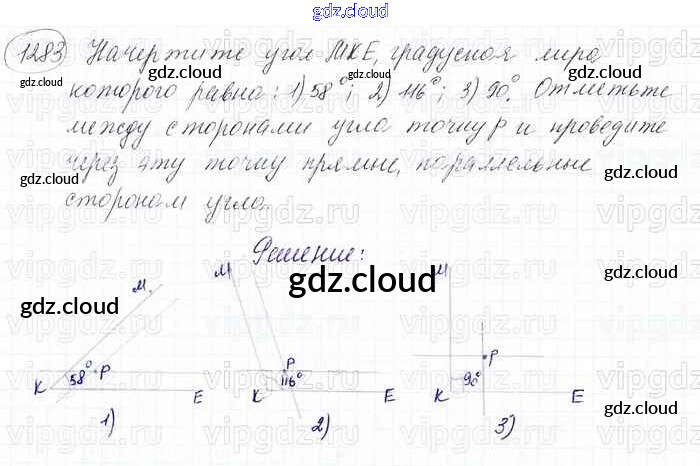 gdz.cloud
1283 Начертите угол МКЕ, градусная мера
которого равна: 1) 58°; 2) 116°; 3) 90°. Отметьте
между сторонами угла точку Р и проведите
через эту точку прямые, параллельные
сторонам угла.
Решение:
М М М
58° Р Р 116° Р 90°
К Е К Е К Е
1) 2) 3)
gdz.cloud
gdz.cloud
gdz.cloud
gdz.cloud
gdz.cloud
gdz.cloud
gdz.cloud
gdz.cloud
vipgdz.ru